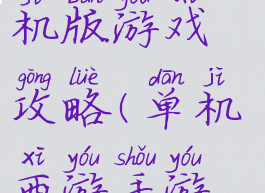 机版游戏
gōng lüè dān jī
攻略(单机
xī yóu shǒu yóu
西游手游